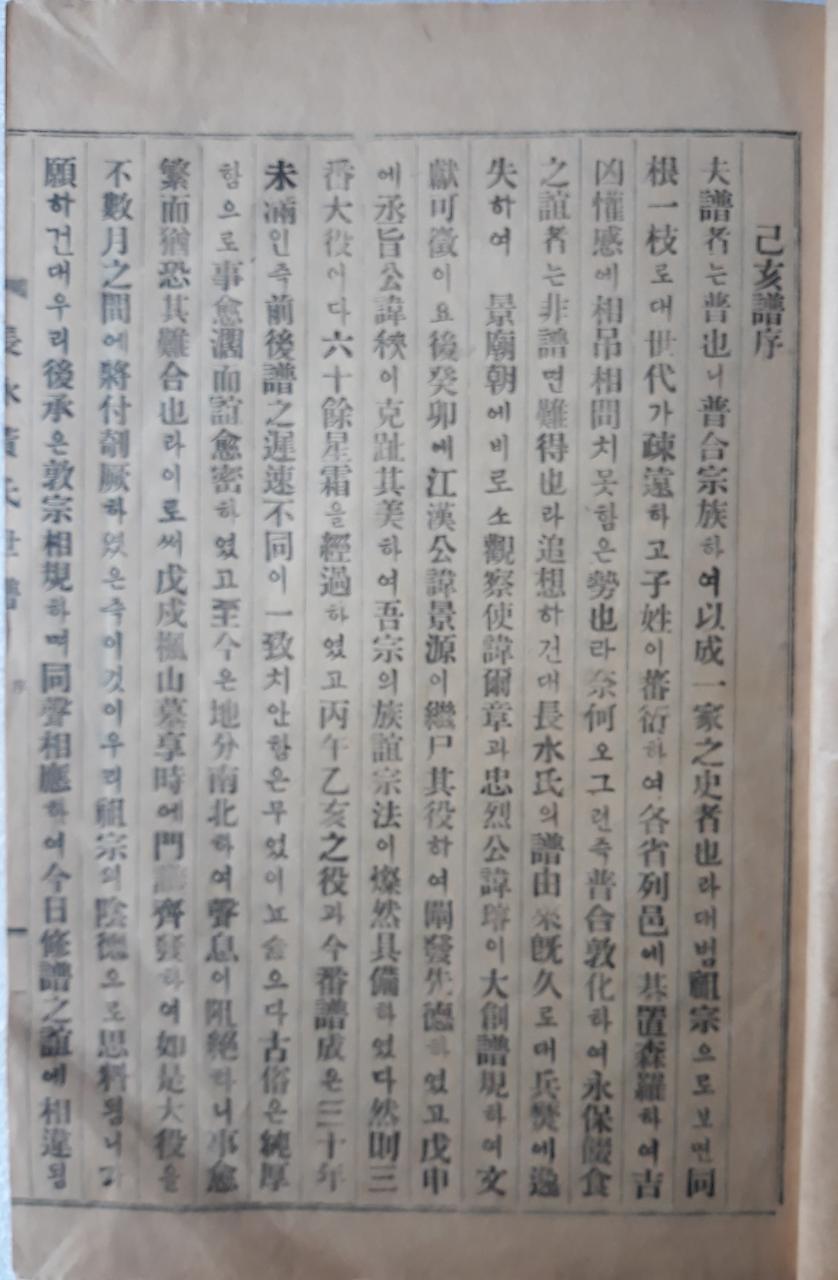 己亥譜序
夫譜者는普也니普合宗族하여以成一家之史者也라대범祖宗으로보면同
根一枝로대世代가疎遠하고子姓이蕃衍하여各省列邑에碁置森羅하여吉
凶懽慼에相吊相問치못함은勢也라奈何오그런즉普合敦化하여永保餟食
之誼者는非譜면難得也라追想하건대長水氏의譜由來旣久로대兵燹에逸
失하여 景廟朝에비로소觀察使諱爾章과忠烈公諱璿이大創譜規하여文
獻可徵이요後癸卯에江漢公諱景源이繼尸其役하여闡發先德하였고戊申
에丞旨公諱秧이克趾其美하여吾宗의族誼宗法이燦然具備하였다然則三
番大役이다六十餘星霜을經過하였고丙午乙亥之役과今番譜成은三十年
未滿인즉前後譜之遲速不同이一致치안함은무었이뇨슬으다古俗은純厚
함으로事愈濶而誼愈密하였고至今은地分南北하여聲息이阻絕하니事愈
繁而猶恐其難合也라이로써戊戍楓山墓享時에門議齊發하여如是大役을
不數月之間에將付剞厥하였은즉이것이우리祖宗의陰德으로思料됩니다
願하건대우리後承은敦宗相規하며同聲相應하여今日修譜之誼에相違됨
長水黃氏世譜 序